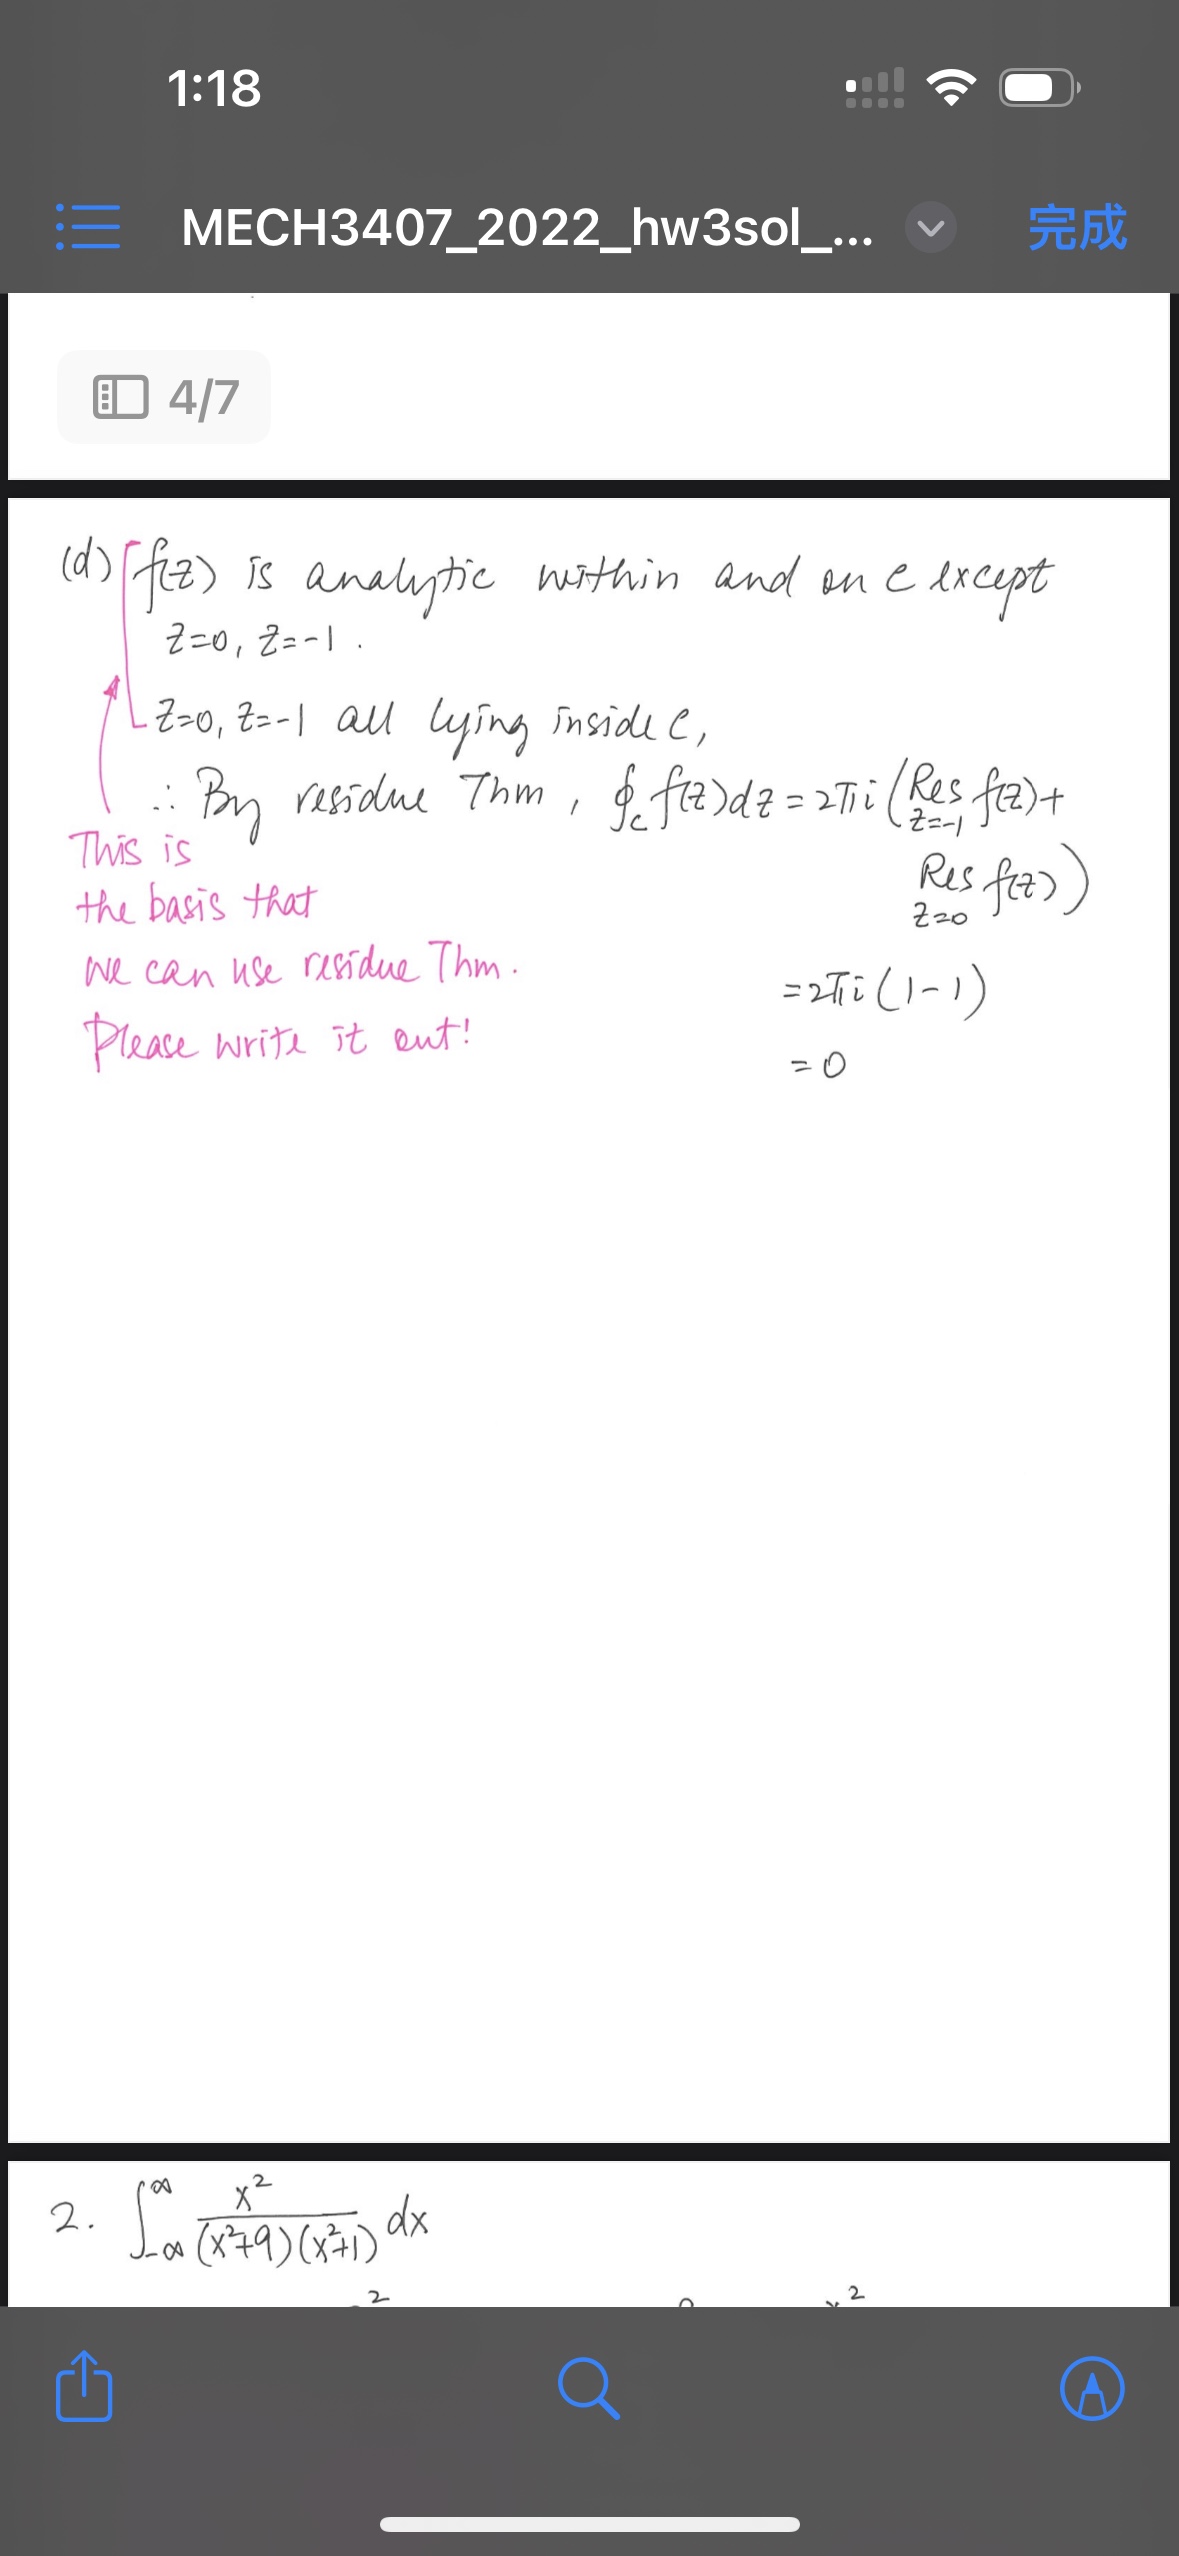 1:18
MECH3407_2022_hw3sol_...
完成
4/7
(d) f(z) is analytic within and on c except
z=0, z=-1.
z=0, z=-1 all lying inside c,
∴ By residue Thm, ∮_c f(z)dz = 2πi (Res_{z=-1} f(z) +
Res_{z=0} f(z))
This is
the basis that
we can use residue Thm.
= 2πi (1-1)
Please write it out!
= 0
2. ∫_{-∞}^{∞} x²/((x²+9)(x²+1)) dx